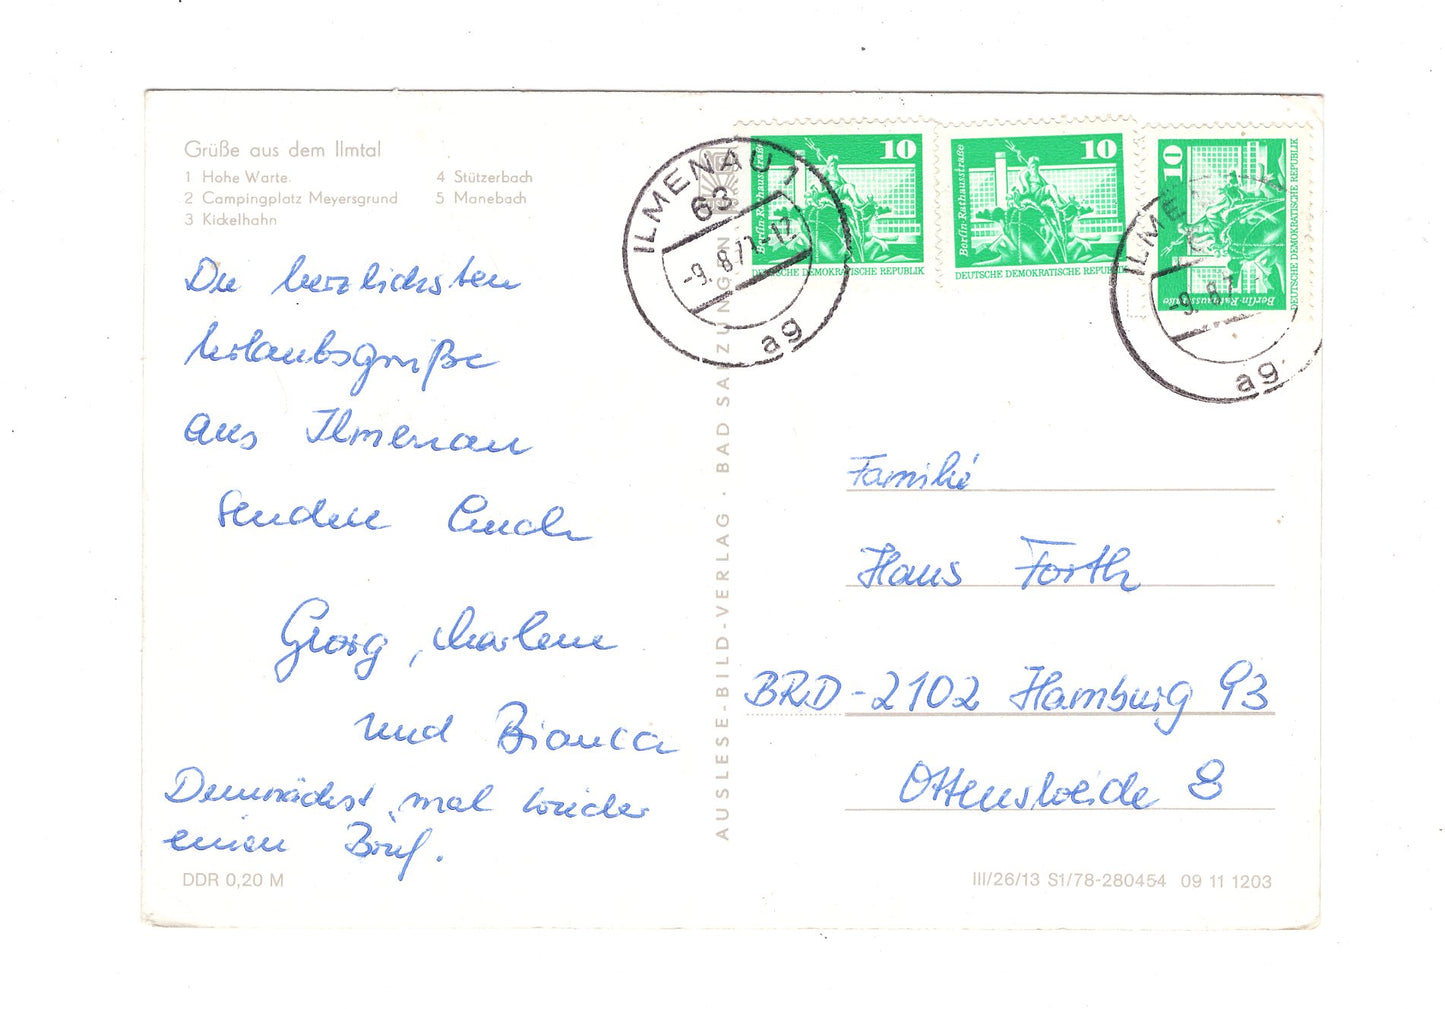 Grüße aus dem Ilmtal
1 Hohe Warte
2 Campingplatz Meyersgrund
3 Kickelhahn
4 Stützerbach
5 Manebach
Die herzlichsten
Urlaubsgrüße
aus Ilmenau
senden Euch
Georg, Marlene
und Bianca
Demnächst mal wieder
einen Brief.
DDR 0,20 M
AUSLESE-BILD-VERLAG · BAD SALZUNGEN
ILMENAU 1
63
-9.8.7
-12
ag
10
Berlin Rathausstraße
DEUTSCHE DEMOKRATISCHE REPUBLIK
10
Berlin Rathausstraße
DEUTSCHE DEMOKRATISCHE REPUBLIK
10
Berlin Rathausstraße
DEUTSCHE DEMOKRATISCHE REPUBLIK
ILME
-9.8.7
ag
Familie
Hans Forth
BRD-2102 Hamburg 93
Ottensweide 8
III/26/13 S1/78-280454 09 11 1203